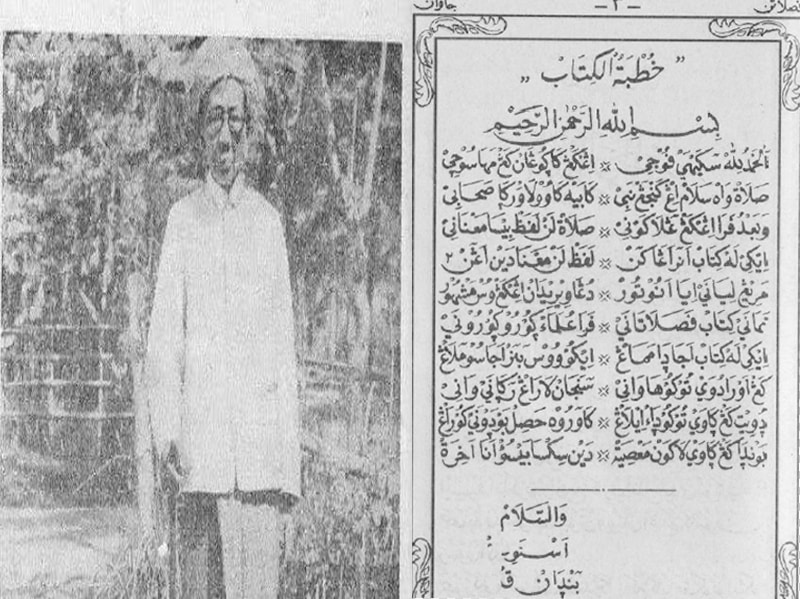 فصلاتن — ٣ — جاوان
” خُطْبَةُ الكِتَابْ “
بِسْمِ اللهِ الرَّحْمٰنِ الرَّحِيْمِ
اَلْحَمْدُ لِلّٰه سكيهي فوجي ※ اڠكڠ كاڮوڠان كڠ مها سوچي
صلاة واه سلام اڠ كنجڠ نبي ※ كابيه كاوولا ورڮا صحابي
وبعد فرا اڠكڠ عْلاكوني ※ صلاة لن لفظ بيسا معناني
ايكي له كتاب ※ لفظ لن معنا دين
مريڠ لياني ايا انوتور ※ اڠكڠ وس مشهور
نماني كتاب فصلاتاني ※ فرا علماء ڮورو ڮوروني
ايكي له كتاب اجا دا مماڠ ※ ايكو ووس بنر اجا سوملاڠ
كڠ اورا دوي توكوها واني ※ سنجان لاراڠ رڮاني واني
دويت كڠ ڮاوي توكو ※ كاوروه حصل بودوني كوراڠ
بوندا كڠ ڮاوي لاكون معصية ※ دين سكسا بيسوء انا اخرة
والسّلام
اسنوي
بندان ق